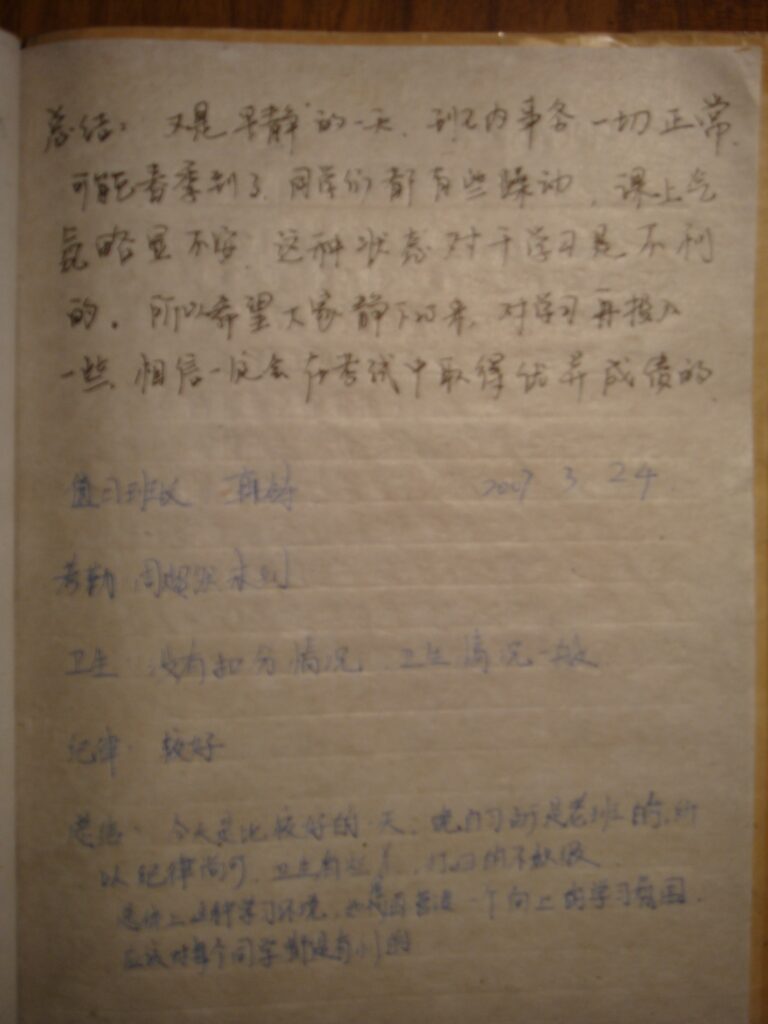 总结: 又是平静的一天, 班内事务一切正常,
可能春季到了, 同学们都有些躁动, 课上气
氛略显不安, 这种状态对于学习是不利
的。所以希望大家静下心来, 对学习再投入
一些, 相信一定会在考试中取得优异成绩的
值日班长 2007 3 24
考勤 周 未到
卫生: 没有扣分情况, 卫生情况一般
纪律: 较好
总结: 今天是比较好的一天, 晚自习所是老班的, 所
以纪律尚可, 卫生有 不积极
总体上这种学习环境, 也 是一个向上的学习氛围,
应该对每个同学都是有利的